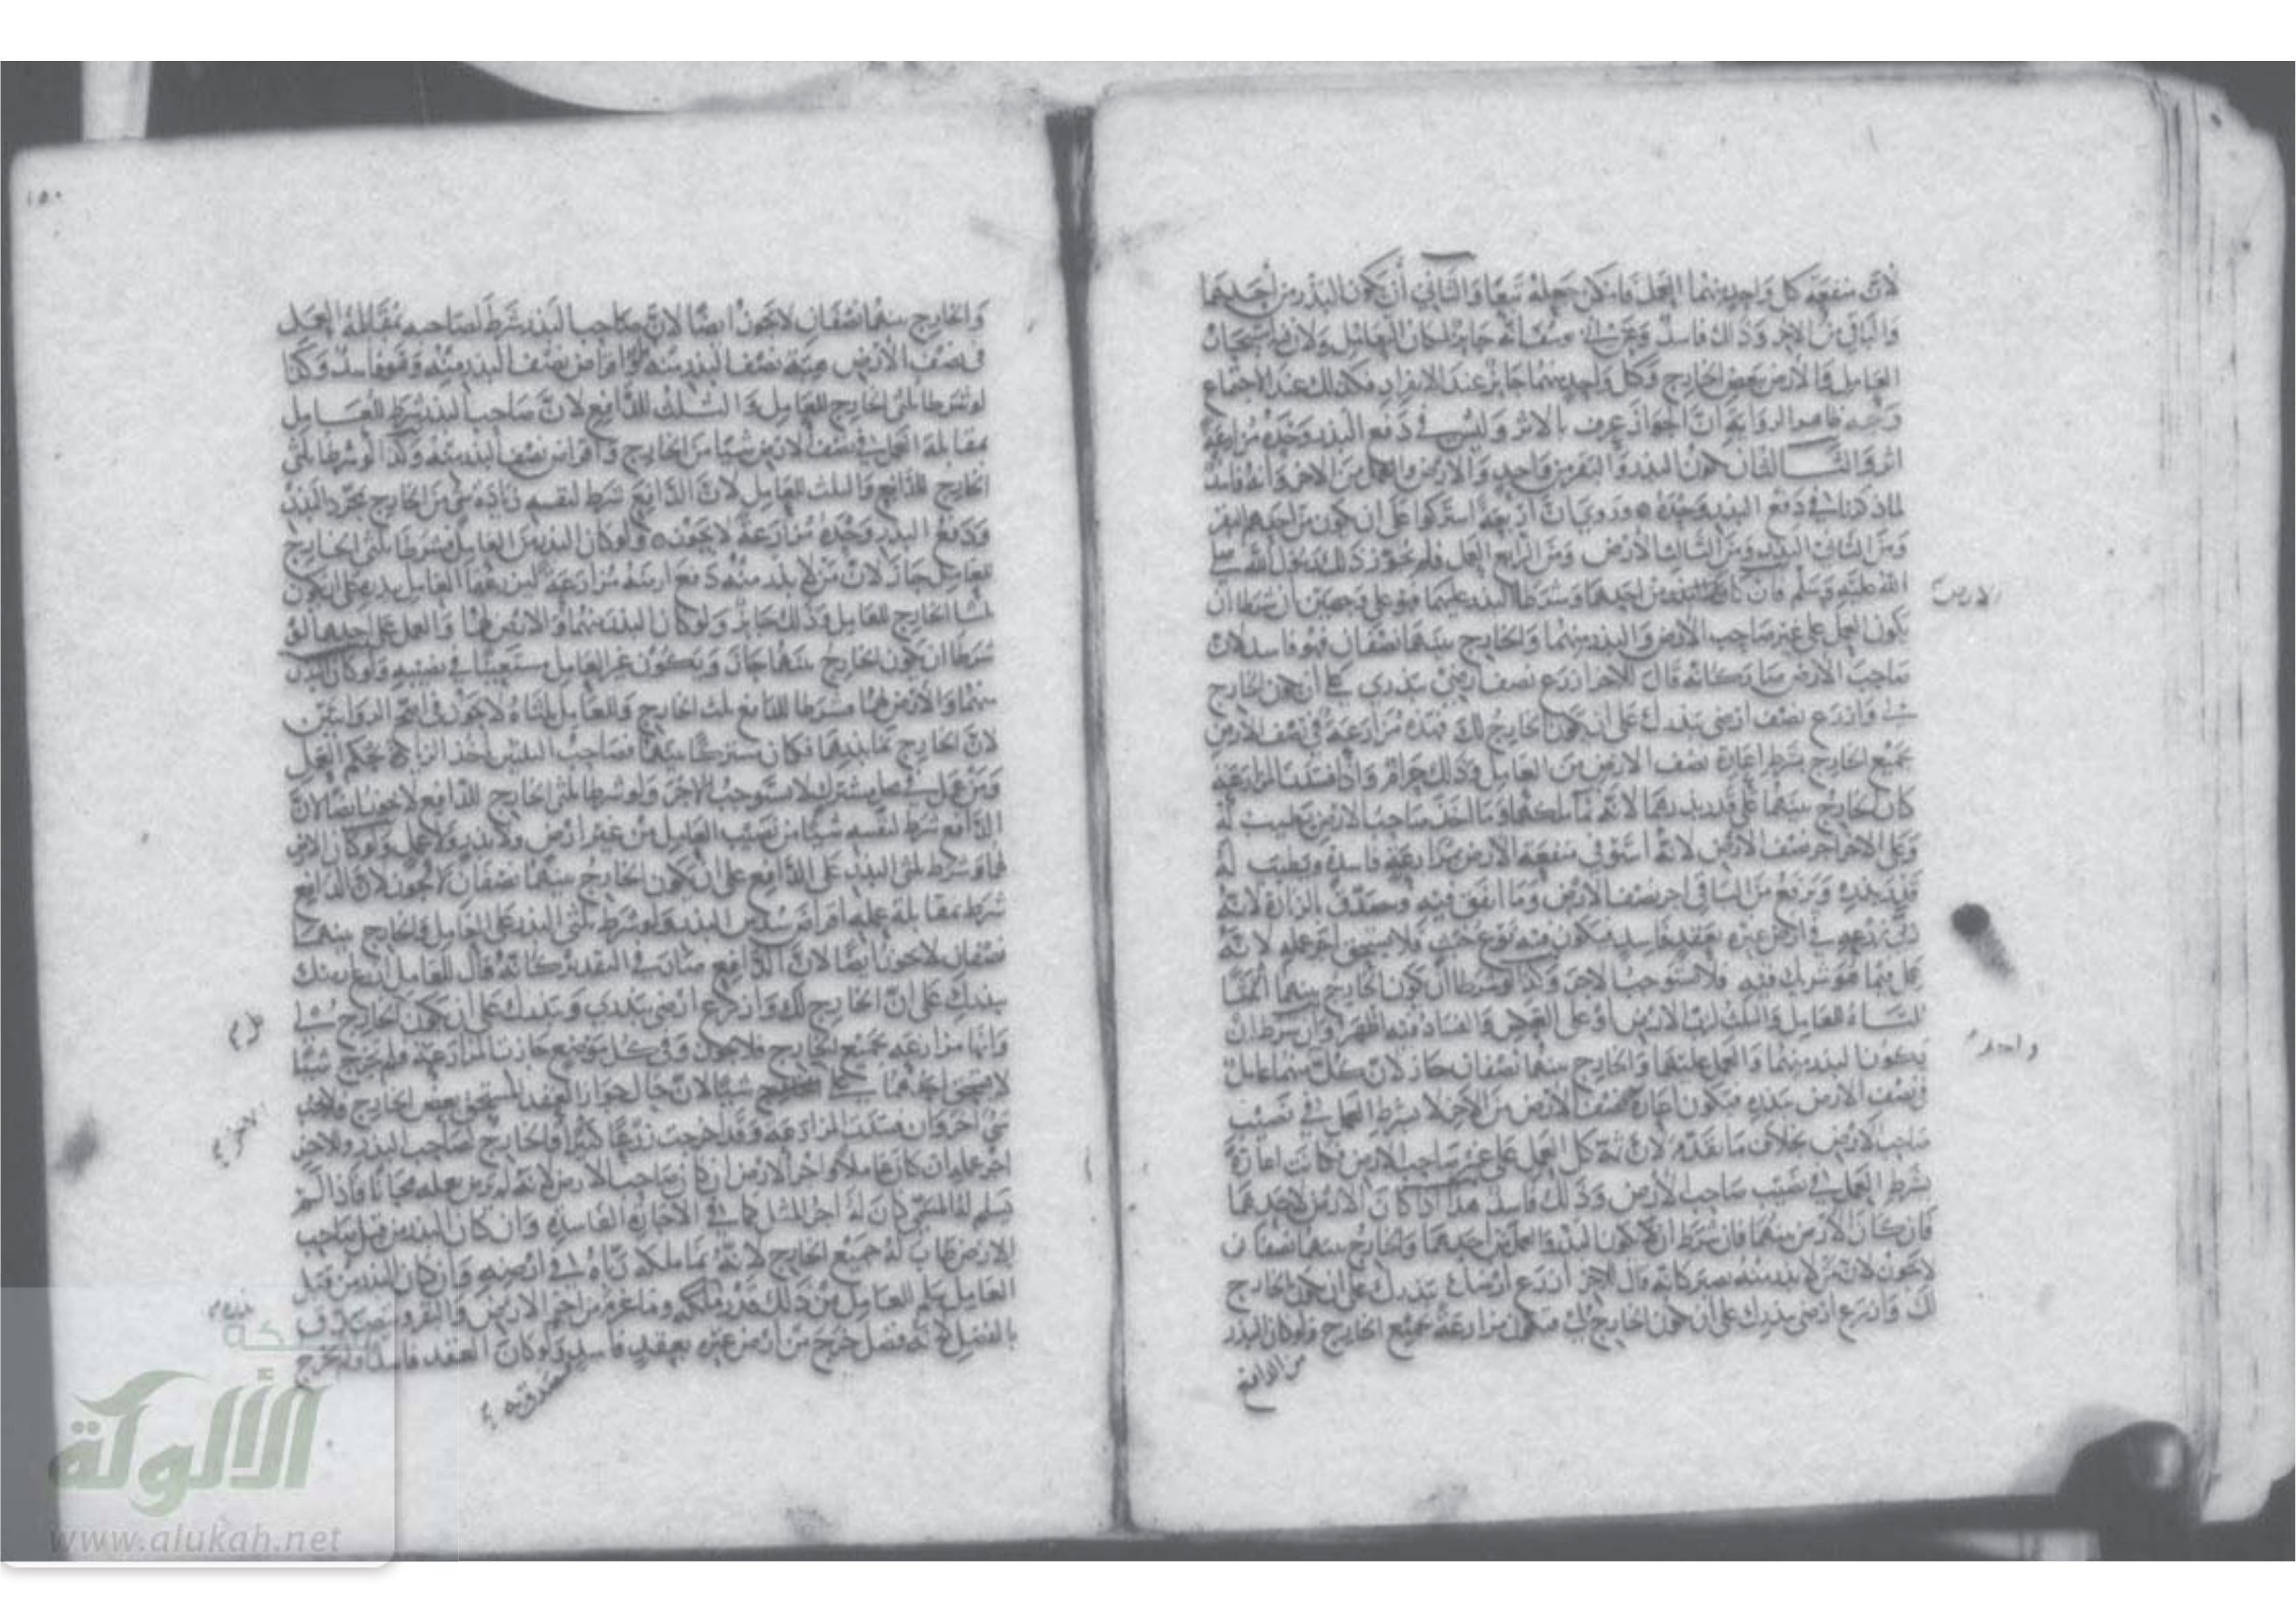 لان منفعة كل واحد منهما العمل فامكن جعله تبعا والثاني ان يكون البذر من احدهما
والباقي من الاخر وذلك فاسد وعن ابي يوسف انه جايز لمكان التعامل ولان استيجار
العامل والارض ببعض الخارج وكل واحد منهما جايز عند الانفراد فكذلك عند الاجتماع
وجه ظاهر الرواية ان الجواز عرف بالاثر وليس في دفع البذر وحده مزارعة
اثر والثالث ان يكون البذر والبقر من واحد والارض والعمل من الاخر وانه فاسد
لما ذكرنا في دفع البذر وحده وروي ان اربعة اشتركوا على ان يكون من احدهم البقر
ومن الثاني البذر ومن الثالث الارض ومن الرابع العمل فلم يجوز ذلك رسول الله صلى
الله عليه وسلم فان كانت من احدهما وشرطا البذر عليهما فهو على وجهين ان شرطا ان
الارض
يكون العمل على غير صاحب الارض والبذر منهما والخارج بينهما نصفان فهو فاسد لان
صاحب الارض صار كانه قال للاخر ازرع نصف ارضي ببذري على ان يكون الخارج
لي وازرع نصف ارضي ببذرك على ان يكون الخارج لك فهذه مزارعة في نصف الارض
بجميع الخارج بشرط اعارة نصف الارض من العامل وذلك حرام واذا فسدت المزارعة
كان الخارج بينهما على قدر بذرهما لانه نما ملكهما وما اخذ صاحب الارض يطيب له
وعلى الاخر اجر نصف الارض لانه استوفى منفعة الارض مزارعة فاسدة ويطيب له
قدر بذره ويرفع من الباقي اجر نصف الارض وما انفق فيه ويتصدق بالزيادة لانه
في ارض غيره بعقد فاسد فيكون فيه نوع خبث ولا يستحق اجر عمله لانه
عمل فيما هو شريك فيه فلا يستوجب الاجر وكذا لو شرطا ان يكون الخارج بينهما اثلاثا
الثلثاه للعامل والثلث لرب الارض او على العكس والفساد فيه اظهر وان شرطا ان
يكون البذر منهما والعمل عليهما والخارج بينهما نصفان جاز لان كل منهما عامل
واحد
في نصف الارض ببذره فيكون اعارة نصف الارض من الاخر لا بشرط العمل في نصيب
صاحب الارض بخلاف ما تقدم لان ثمة كل العمل على غير صاحب الارض فكانت اعارة
بشرط العمل في نصيب صاحب الارض وذلك فاسد هذا اذا كان الارض لاحدهما
فان كان الارض بينهما فان شرط ان يكون البذر والعمل من احدهما والخارج بينهما نصفان
لا يجوز لان من لا بذر منه يصير كانه قال للاخر ازرع ارضك ببذرك على ان يكون الخارج
لك وازرع ارضي ببذرك على ان يكون الخارج لك فيكون مزارعة بجميع الخارج ولو كان البذر
من الدافع
١٥٠
والخارج بينهما نصفان لا يجوز ايضا لان صاحب البذر شرط لصاحبه بمقابلة العمل
في نصف الارض هبة نصف البذر منه او اقراض نصف البذر منه وهو فاسد وكذا
لو شرطا ثلثي الخارج للعامل والثلث للدافع لان صاحب البذر شرط للعامل
بمقابلة العمل في نصف الارض شيئا من الخارج واقراض نصف البذر منه وكذا لو شرطا ثلثي
الخارج للدافع والثلث للعامل لان الدافع شرط لنفسه زيادة شي من الخارج بمجرد البذر
ودفع البذر وحده مزارعة لا يجوز ولو كان البذر من العامل فشرطا ثلثي الخارج
للعامل جاز لان من لا بذر منه دفع ارضه مزارعة ليزرعها العامل ببذره على ان يكون
ثلثا الخارج للعامل وذلك جايز ولو كان البذر منهما والارض لهما والعمل على احدهما ان
شرطا ان يكون الخارج بينهما جاز ويكون غير العامل مستعينا في نصيبه ولو كان البذر
منهما والارض لهما فشرطا للدافع ثلث الخارج وللعامل ثلثاه لا يجوز في اصح الروايتين
لان الخارج نما بذرهما فكان مشتركا بينهما فصاحب الثلثين اخذ الزيادة بحكم العمل
ومن عمل في محل مشترك لا يستوجب الاجر ولو شرطا ثلثي الخارج للدافع لا يجوز ايضا لان
الدافع شرط لنفسه شيئا من نصيب العامل من غير ارض ولا بذر ولا عمل ولو كان الارض
لهما وشرط ثلثي البذر على الدافع على ان يكون الخارج بينهما نصفان لا يجوز لان الدافع
شرط بمقابلة عمله اقراض سدس البذر ولو شرط ثلثي البذر على العامل والخارج بينهما
نصفان لا يجوز ايضا لان الدافع صار في التقدير كانه قال للعامل ازرع ارضك
ببذرك على ان الخارج لك وازرع ارضي ببذري وببذرك على ان يكون الخارج لي
وانها مزارعة بجميع الخارج فلا يجوز وفي كل موضع جازت المزارعة فلم يخرج شيئا
لا يستحق احدهما على شيئا لان حال جواز العقد المستحق بعض الخارج ولا يجب
الاخر
شي اخر وان فسدت المزارعة وقد اخرجت زرعا كثيرا فالخارج لصاحب البذر وللاخر
اجر عمله ان كان عاملا واجر الارض ان كان صاحب الارض لانه لم يرض بعمله مجانا فاذا لم
يسلم له المسمى كان له اجر المثل كما في الاجارة الفاسدة وان كان البذر من قبل صاحب
الارض طاب له جميع الخارج لانه نما ملكه رباه في ارضه وان كان البذر من قبل
العامل يسلم للعامل من ذلك قدر ملكه وما غرم من اجر الارض والبقر ويتصدق
بالفضل لانه فضل خرج من ارض غيره بعقد فاسد ولو كان العقد فاسدا فلم يخرج